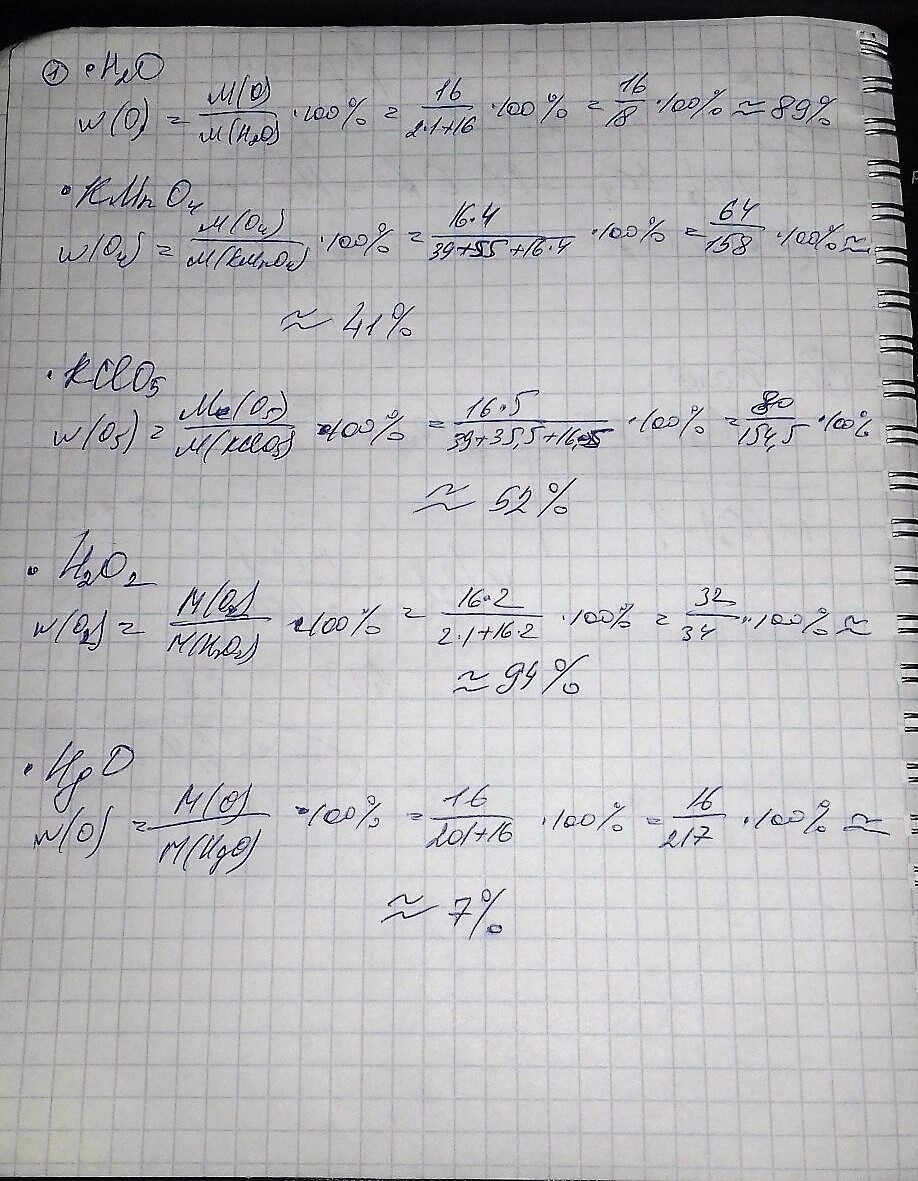 ① • H₂O
w(O) = M(O)/M(H₂O) · 100% = 16/2·1+16 · 100% = 16/18 · 100% ≈ 89%
• KMnO₄
w(O₄) = M(O₄)/M(KMnO₄) · 100% = 16·4/39+55+16·4 · 100% = 64/158 · 100% ≈
≈ 41%
• KClO₅
w(O₅) = M(O₅)/M(KClO₅) · 100% = 16·5/39+35,5+16·5 · 100% = 80/154,5 · 100%
≈ 52%
• H₂O₂
w(O₂) = M(O₂)/M(H₂O₂) · 100% = 16·2/2·1+16·2 · 100% = 32/34 · 100% ≈
≈ 94%
• HgO
w(O) = M(O)/M(HgO) · 100% = 16/201+16 · 100% = 16/217 · 100% ≈
≈ 7%